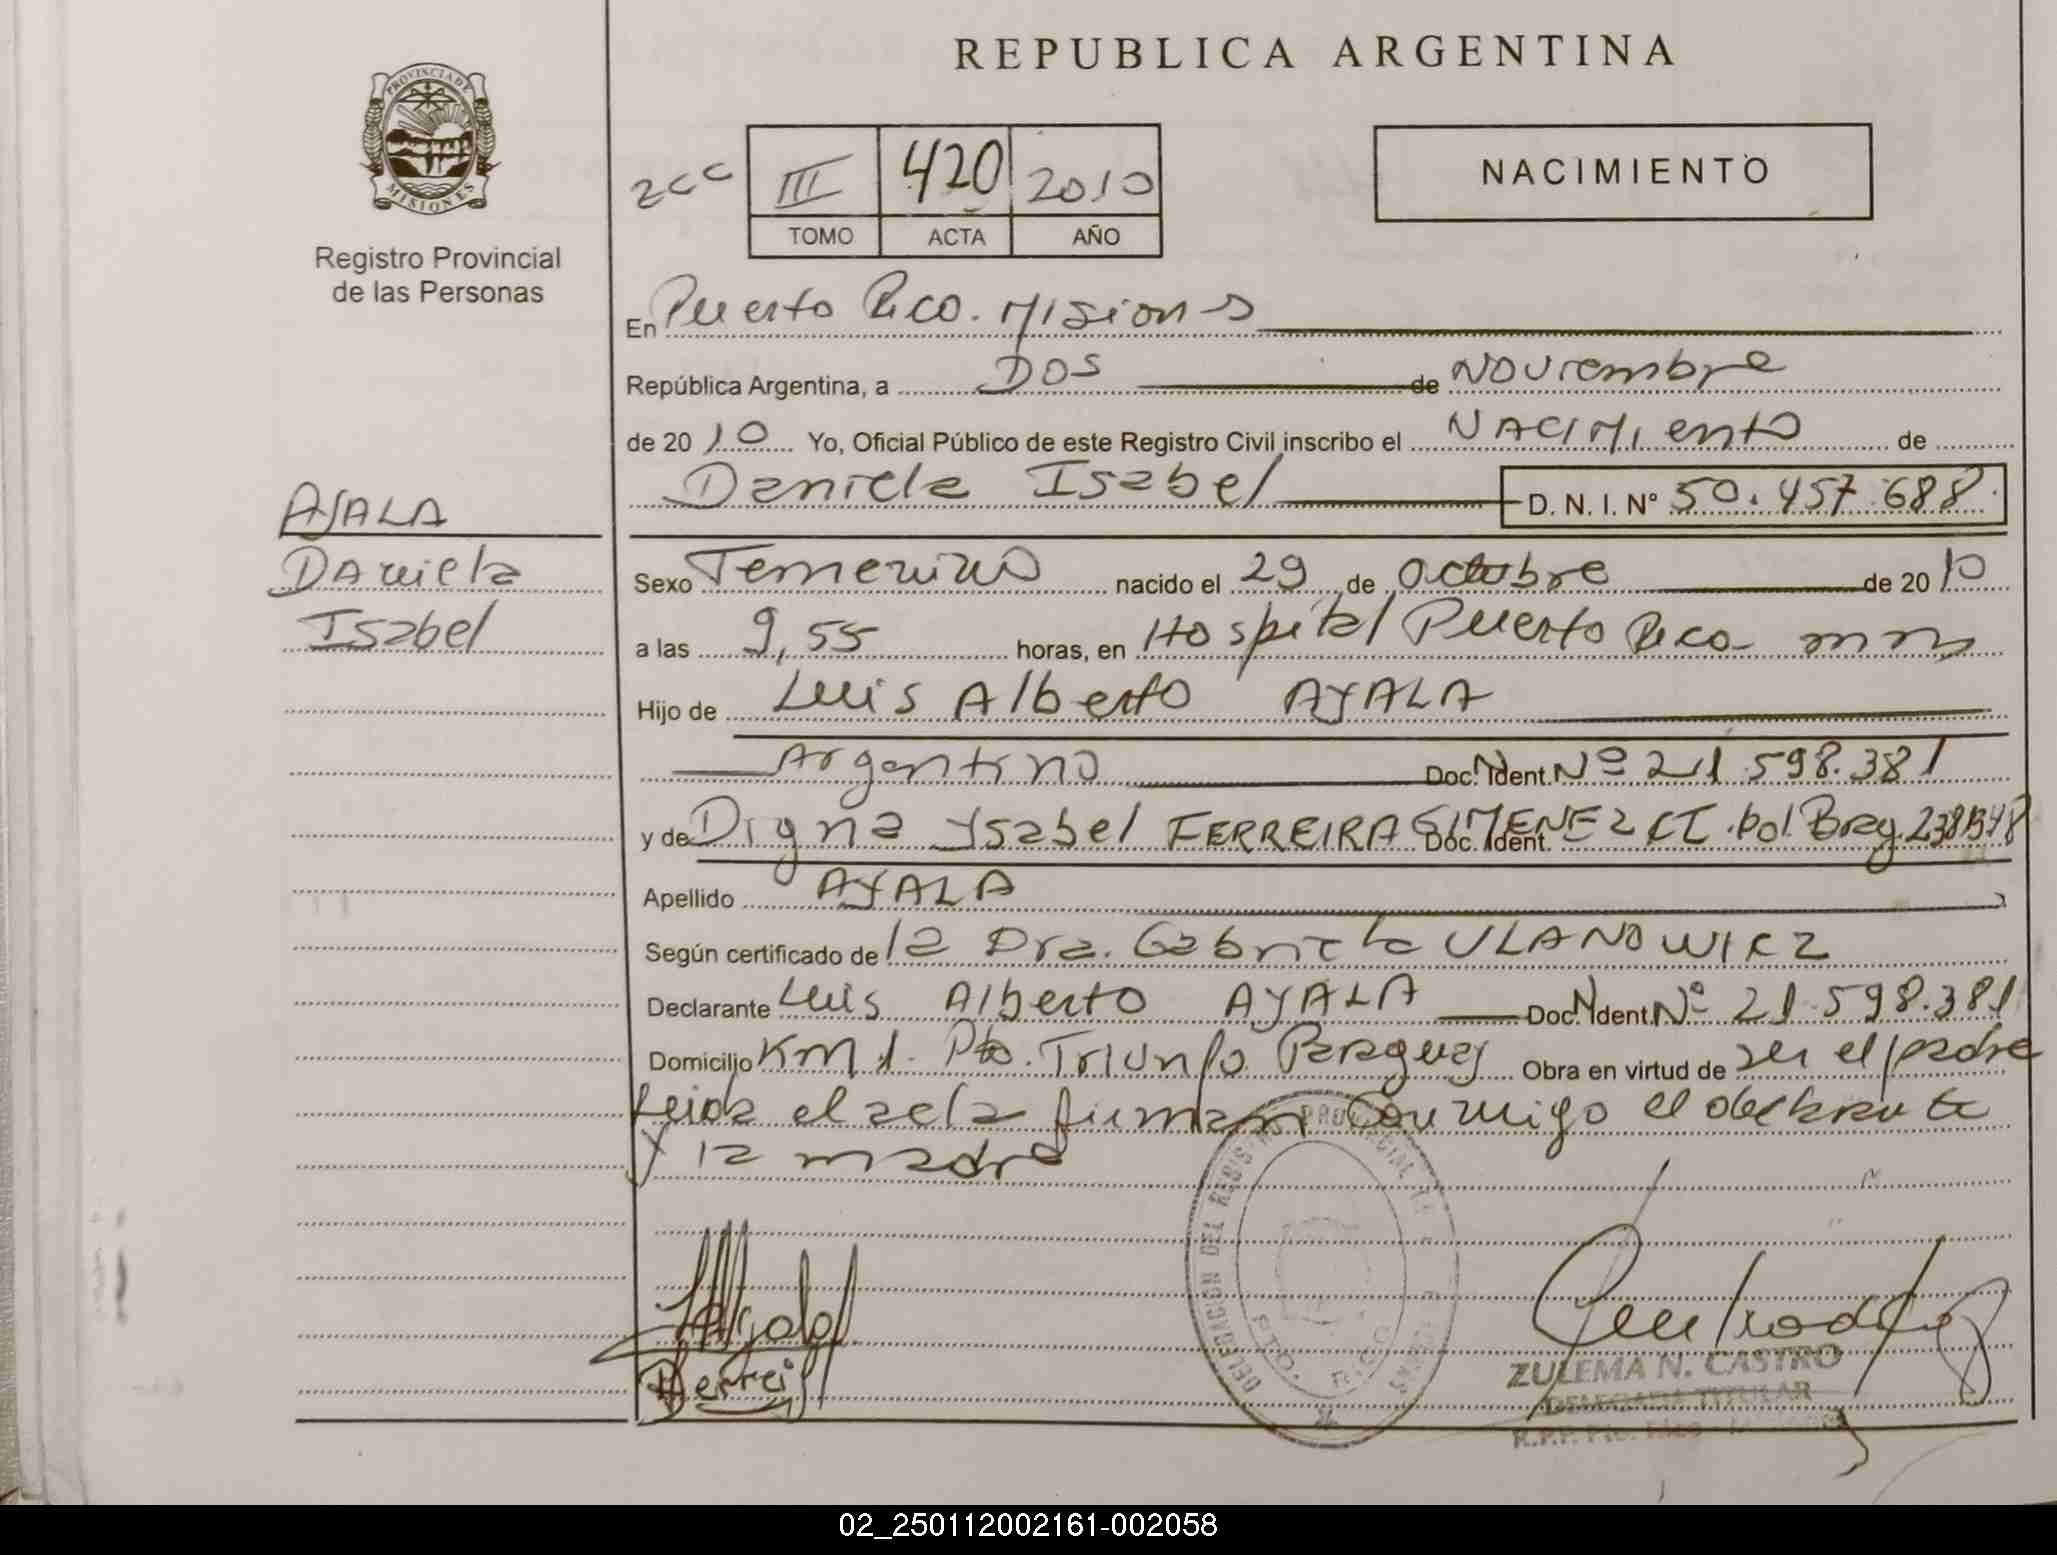 REPUBLICA ARGENTINA
PROVINCIA DE MISIONES
Registro Provincial
de las Personas
2cc III 420 2010
TOMO ACTA AÑO
NACIMIENTO
En Puerto Rico. Misiones
República Argentina, a Dos de Noviembre
de 2010 Yo, Oficial Público de este Registro Civil inscribo el Nacimiento de
Daniela Isabel D. N. I. N° 50.457.688.
AYALA
Daniela
Isabel
Sexo Femenino nacido el 29 de octubre de 2010
a las 9,55 horas, en Hospital Puerto Rico
Hijo de Luis Alberto AYALA
Argentino Doc. Ident. Nº 21.598.381
y de Digna Ysabel FERREIRA GIMENEZ Doc. Ident. CI. pol.
Apellido AYALA
Según certificado de la Dra. Gabriela ULANOWICZ
Declarante Luis Alberto AYALA Doc. Ident. Nº 21.598.381
Domicilio Km 1. Pto. Triunfo Paraguay Obra en virtud de ser el padre
leida el acta firman conmigo el declarante
y la madre
DELEGACION DEL REGISTRO PROVINCIAL DE LAS PERSONAS
PTO. RICO
ZULEMA N. CASTRO
DELEGADA TITULAR
R.P.P. Pto. Rico
02_250112002161-002058